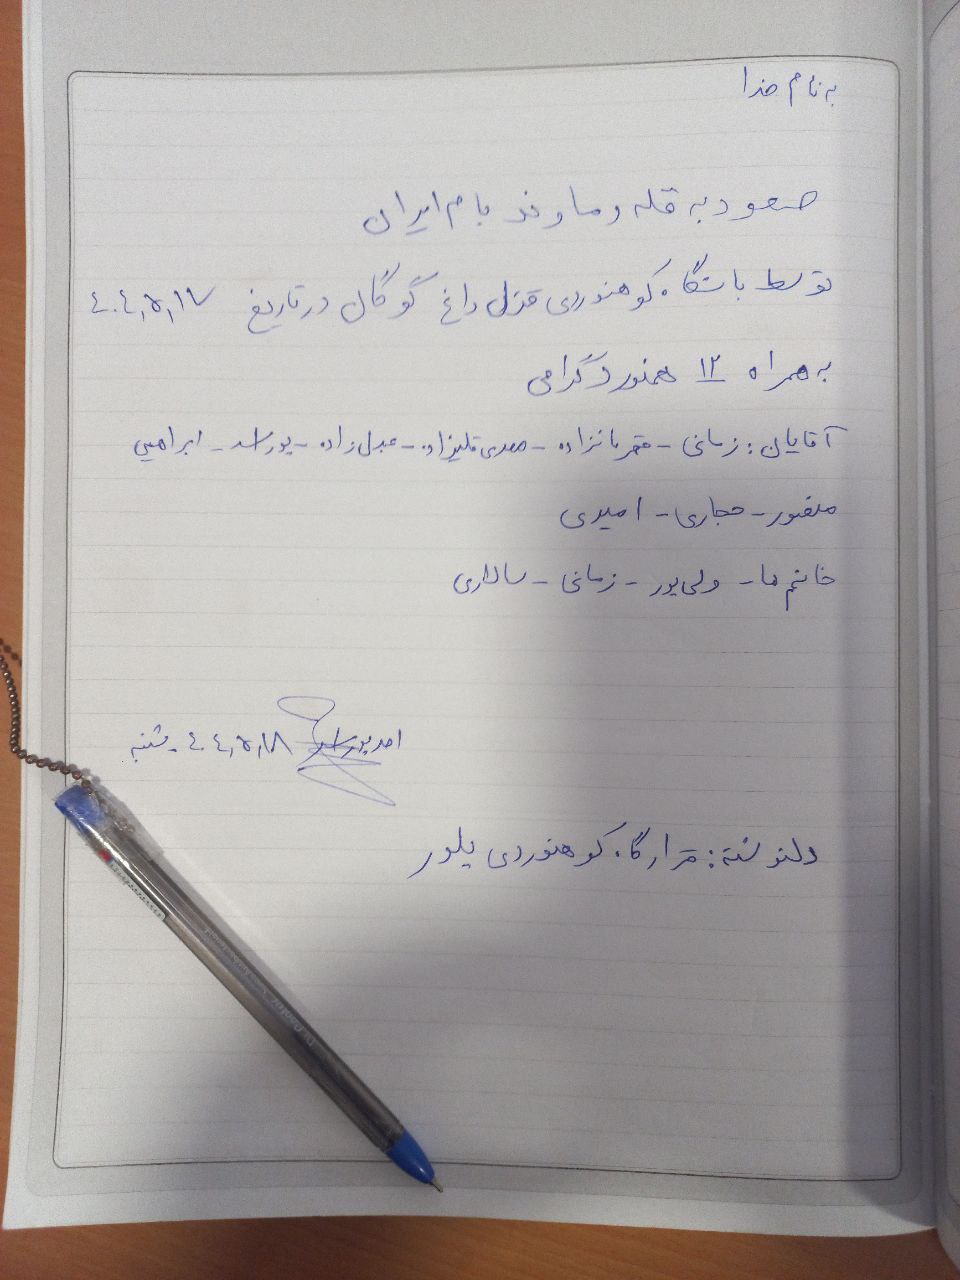 به نام خدا
صعود به قله دماوند بام ایران
توسط باشگاه کوهنوردی قزل داغ گوگال در تاریخ ۴۰۴,۵,۱۷
به همراه ۱۲ همنورد گرامی
آقایان: زمانی - قهرمانزاده - مهدی قلیزاده - عبدل زاده - پور اسد - ابراهیمی
منصور - حجاری - امیری
خانم ها - ولی پور - زمانی - سالاری
احد پور اسد ۴۰۴,۵,۱۸ شنبه
دلنوشته: قرارگاه کوهنوردی پلور